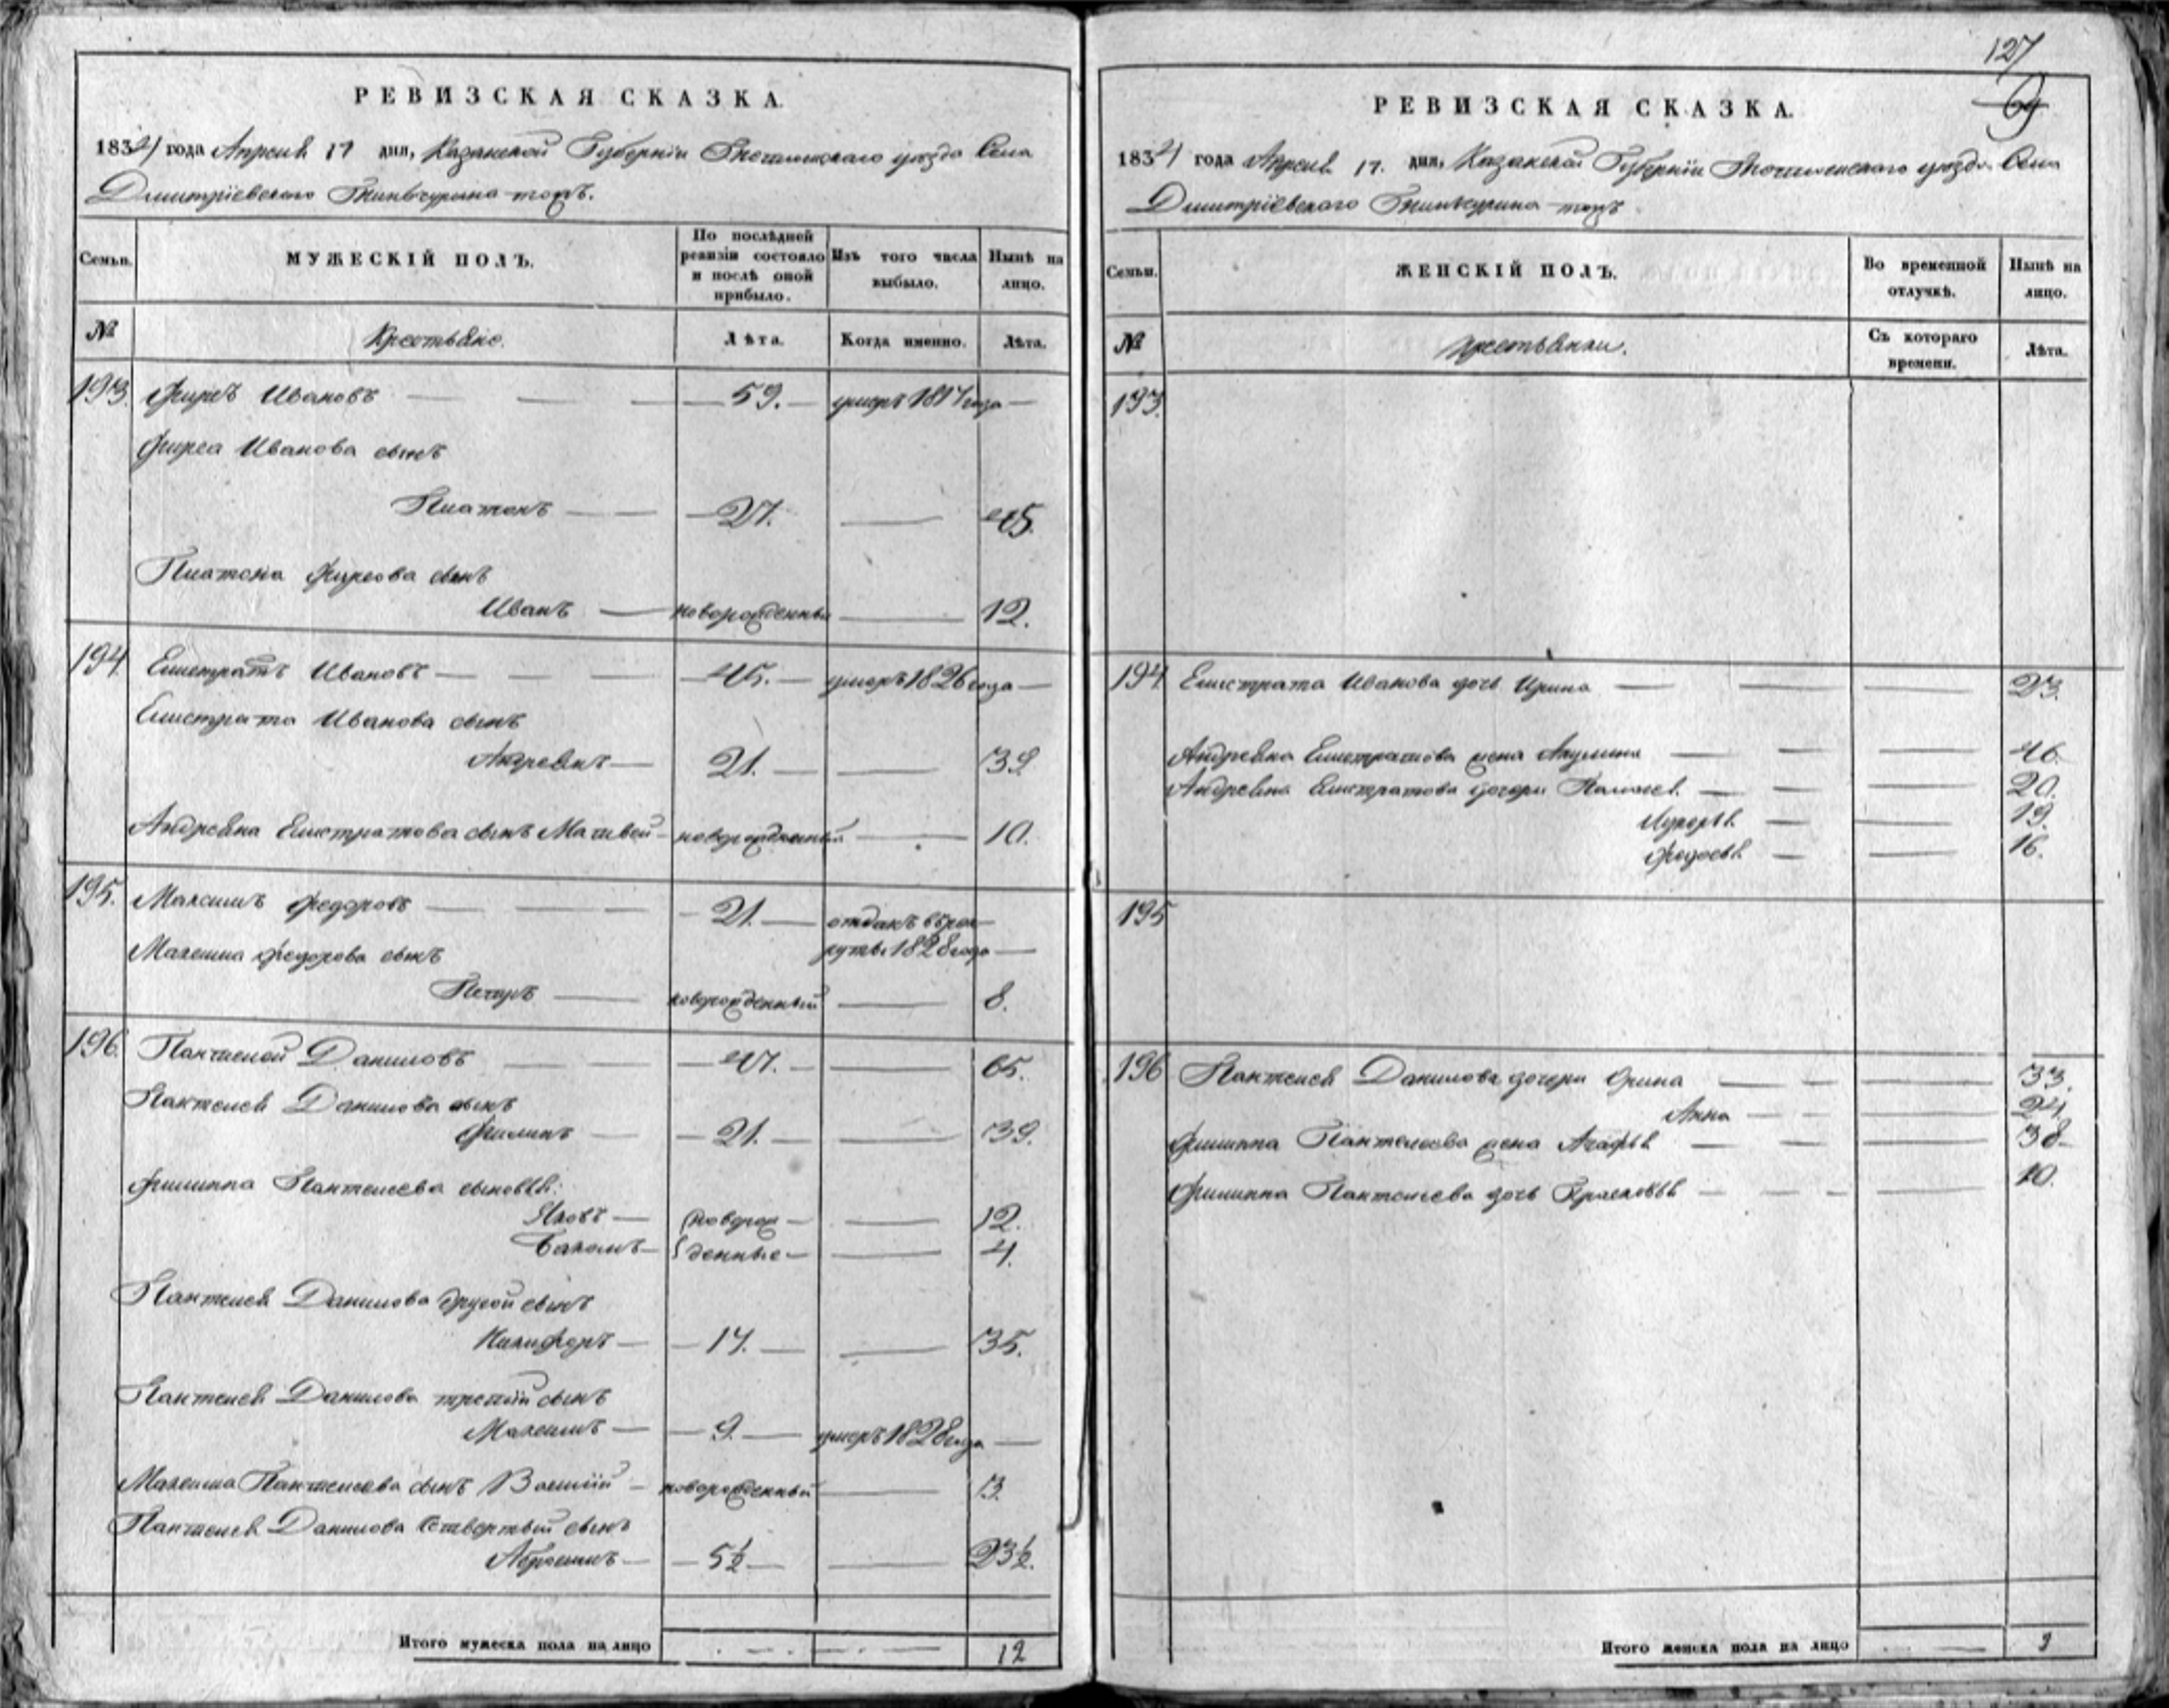 РЕВИЗСКАЯ СКАЗКА.
1834 года Апреля 17 дня, Казанской Губернiи уезда Села
Дмитрiевского тожъ.
Семьи. МУЖЕСКIЙ ПОЛЪ. По послѣдней ревизiи состояло и послѣ оной прибыло. Изъ того числа выбыло. Нынѣ на лицо.
№ Крестьяне. Лѣта. Когда именно. Лѣта.
193. Фирсъ Ивановъ 59. умеръ 1817 года
Фирса Иванова сынъ
Платонъ 27. 45.
Платона Фирсова сынъ
Иванъ новорожденный 12.
194 Елистратъ Ивановъ 45. умеръ 1826 года
Елистрата Иванова сынъ
Андреянъ 21. 39
Андреяна Елистратова сынъ Матвей новорожденный 10.
195. Максимъ Федоровъ 21. отданъ в рек
руты 1828 года
Максима Федорова сынъ
Петръ новорожденный 8.
196. Пантелей Даниловъ 47. 65.
Пантелея Данилова сынъ
Филипъ 21. 39.
Филиппа Пантелеева сыновья:
Яковъ новорож 12.
денные 4.
Пантелея Данилова другой сынъ
Никифоръ 17. 35.
Пантелея Данилова третiй сынъ
Максимъ 9. умеръ 1828 года
Максима Пантелеева сынъ новорожденный 13.
Пантелея Данилова четвертый сынъ
Абросимъ 5½ 23½.
Итого мужеска пола на лицо 12
127
69
РЕВИЗСКАЯ СКАЗКА.
1834 года Апреля 17. дня, Казанской Губернiи уезда Села
Дмитрiевского тожъ
Семьи. ЖЕНСКIЙ ПОЛЪ. Во временной отлучкѣ. Нынѣ на лицо.
№ Крестьянки. Съ котораго времени. Лѣта.
193.
194 Елистрата Иванова дочь Ирина 23.
Андреяна Елистратова жена Акулина 46.
Андреяна Елистратова дочери Пелагея 20.
Лукерья 19.
Федосья 16.
195
196 Пантелея Данилова дочери Орина 33.
Анна 24
Филиппа Пантелеева жена Агафья 38
Филиппа Пантелеева дочь Прасковья 10.
Итого женска пола на лицо 9